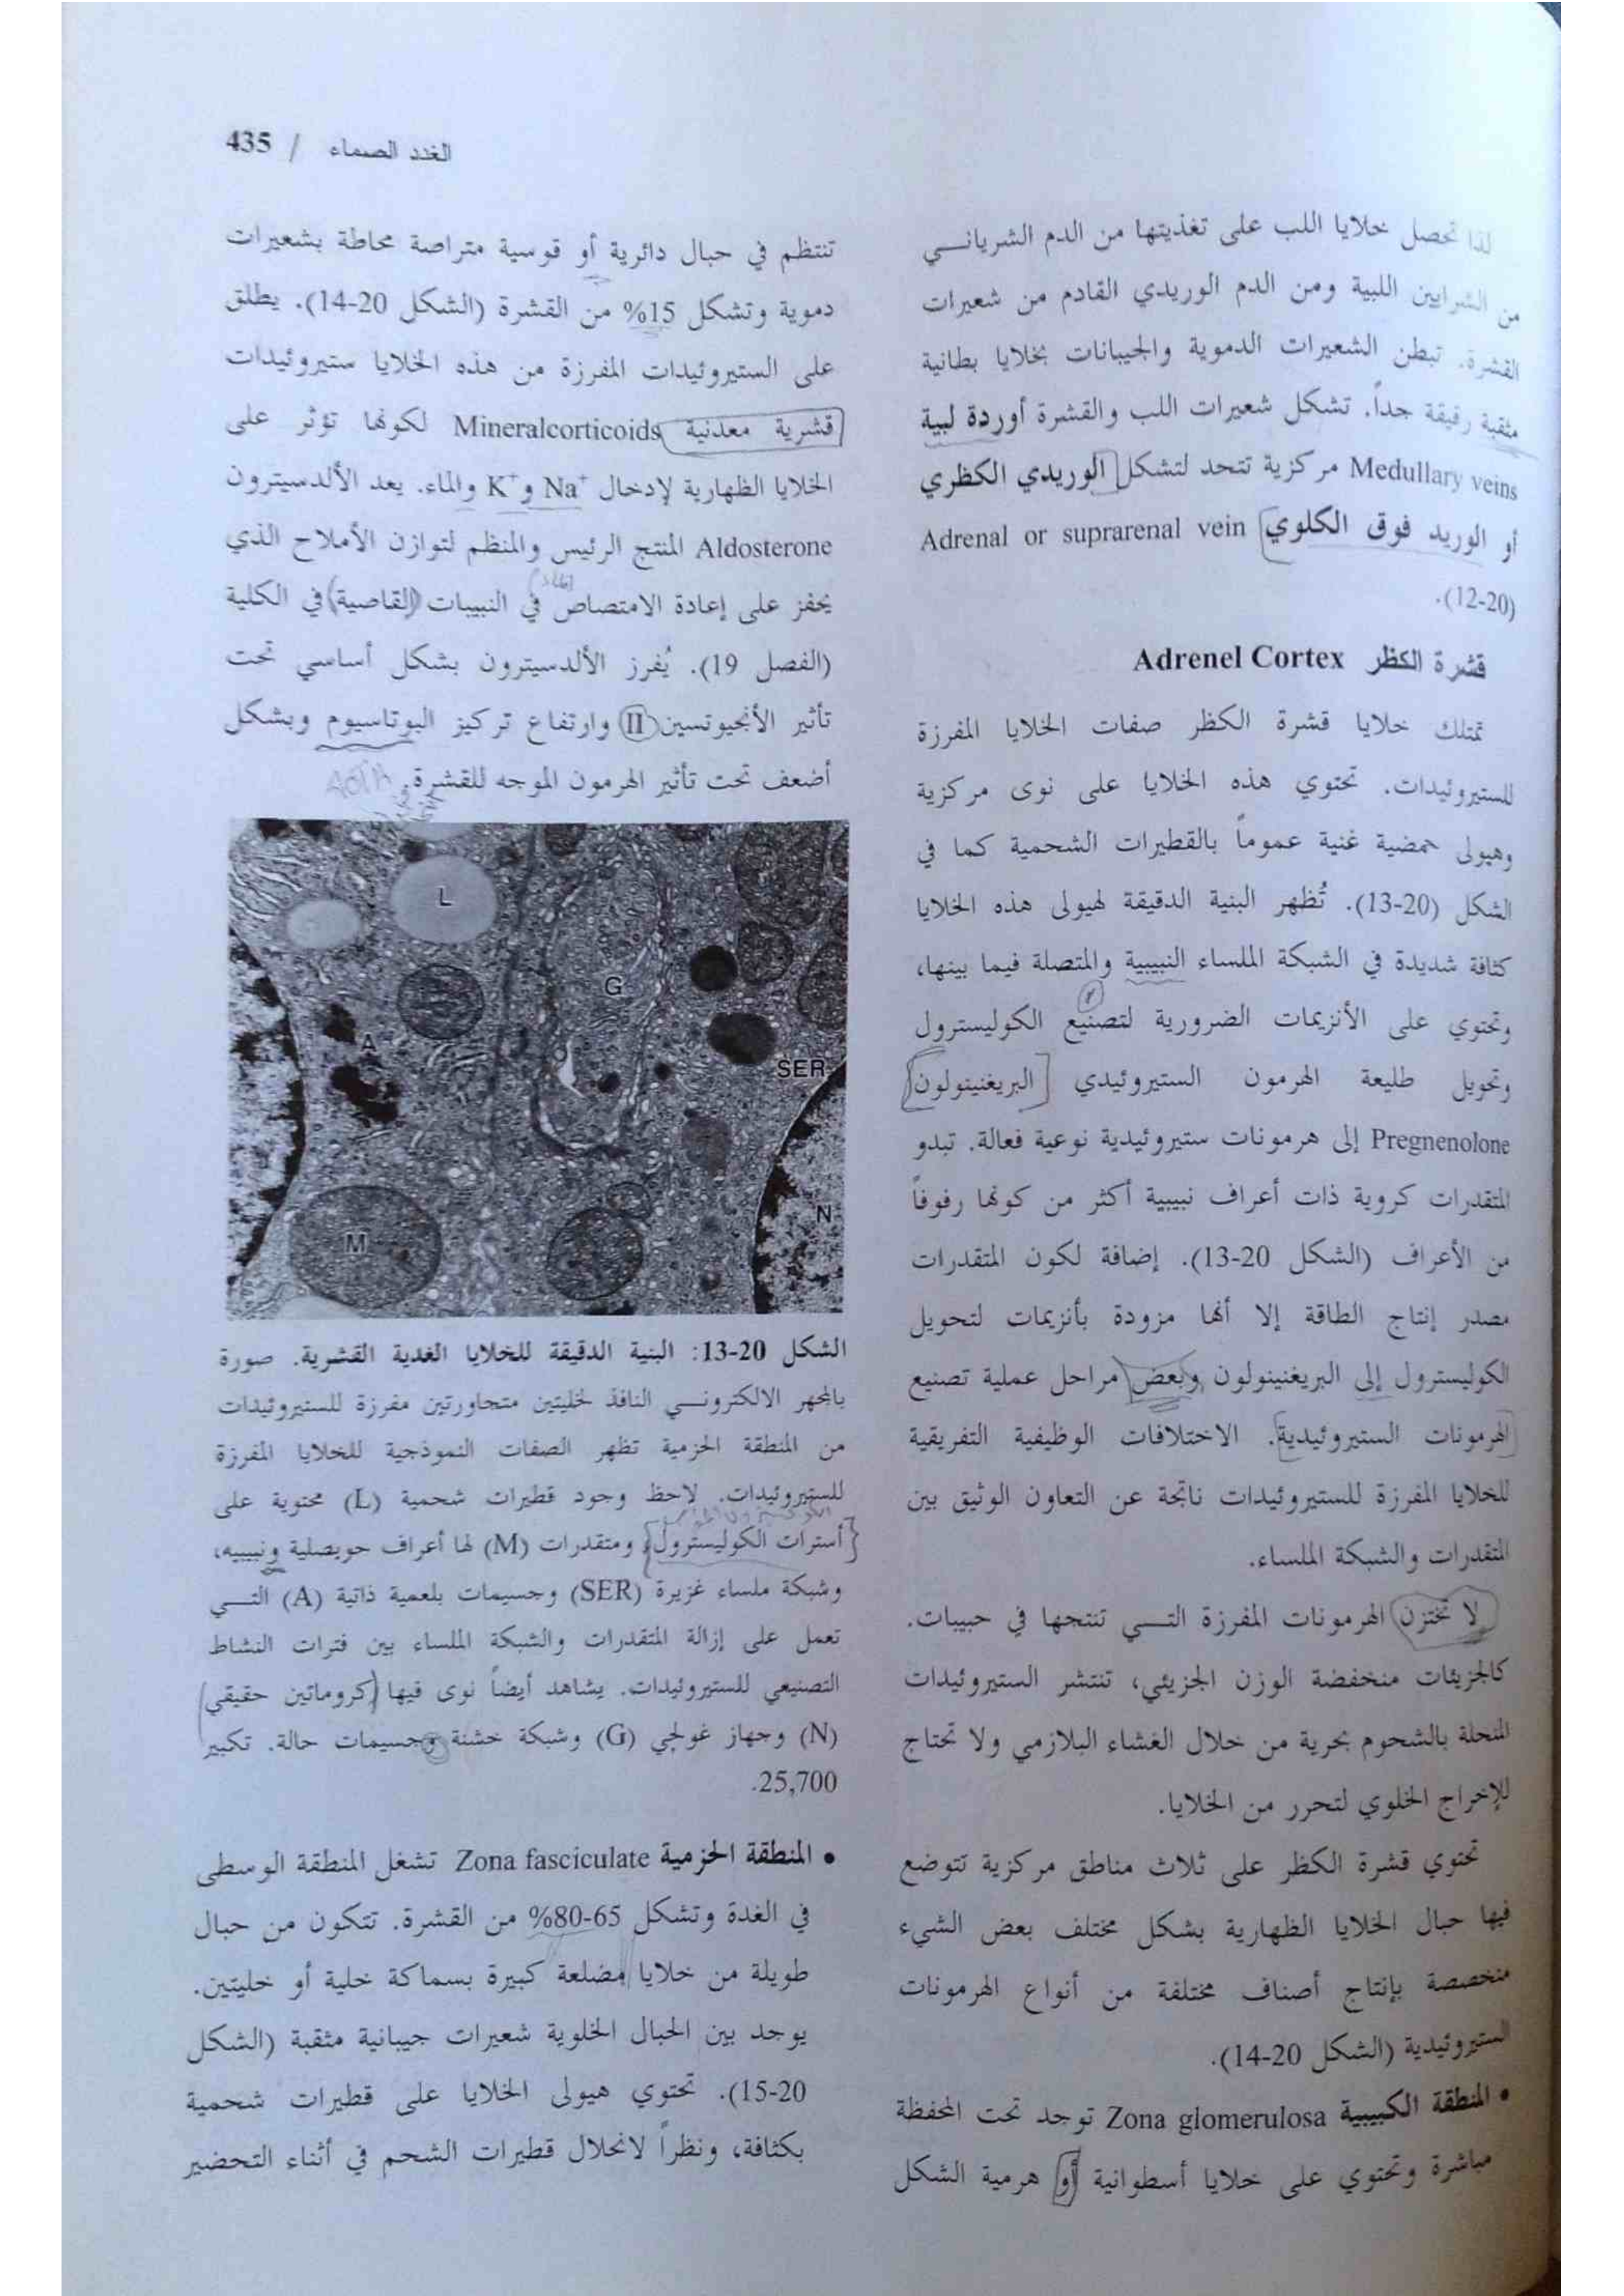 الغدد الصماء / 435
لذا تحصل خلايا اللب على تغذيتها من الدم الشرياني
من الشرايين اللبية ومن الدم الوريدي القادم من شعيرات
القشرة. تبطن الشعيرات الدموية والجيبانات بخلايا بطانية
مثقبة رقيقة جداً. تشكل شعيرات اللب والقشرة أوردة لبية
Medullary veins مركزية تتحد لتشكل الوريدي الكظري
أو الوريد فوق الكلوي Adrenal or suprarenal vein
(12-20).
قشرة الكظر Adrenel Cortex
تمتلك خلايا قشرة الكظر صفات الخلايا المفرزة
للستيروئيدات. تحتوي هذه الخلايا على نوى مركزية
وهيولى حمضية غنية عموماً بالقطيرات الشحمية كما في
الشكل (20-13). تُظهر البنية الدقيقة لهيولى هذه الخلايا
كثافة شديدة في الشبكة الملساء النبيبية والمتصلة فيما بينها،
وتحتوي على الأنزيمات الضرورية لتصنيع الكوليسترول
وتحويل طليعة الهرمون الستيروئيدي البريغنينولون
Pregnenolone إلى هرمونات ستيروئيدية نوعية فعالة. تبدو
المتقدرات كروية ذات أعراف نبيبية أكثر من كونها رفوفاً
من الأعراف (الشكل 20-13). إضافة لكون المتقدرات
مصدر إنتاج الطاقة إلا أنها مزودة بأنزيمات لتحويل
الكوليسترول إلى البريغنينولون وبعض مراحل عملية تصنيع
الهرمونات الستيروئيدية. الاختلافات الوظيفية التفريقية
للخلايا المفرزة للستيروئيدات ناتجة عن التعاون الوثيق بين
المتقدرات والشبكة الملساء.
لا تختزن الهرمونات المفرزة التي تنتجها في حبيبات.
كالجزيئات منخفضة الوزن الجزيئي، تنتشر الستيروئيدات
المنحلة بالشحوم بحرية من خلال الغشاء البلازمي ولا تحتاج
للإخراج الخلوي لتحرر من الخلايا.
تحتوي قشرة الكظر على ثلاث مناطق مركزية تتوضع
فيها حبال الخلايا الظهارية بشكل مختلف بعض الشيء
متخصصة بإنتاج أصناف مختلفة من أنواع الهرمونات
الستيروئيدية (الشكل 20-14).
• المنطقة الكبيبية Zona glomerulosa توجد تحت المحفظة
مباشرة وتحتوي على خلايا أسطوانية أو هرمية الشكل
تنتظم في حبال دائرية أو قوسية متراصة محاطة بشعيرات
دموية وتشكل 15% من القشرة (الشكل 20-14). يطلق
على الستيروئيدات المفرزة من هذه الخلايا ستيروئيدات
قشرية معدنية Mineralcorticoids لكونها تؤثر على
الخلايا الظهارية لإدخال Na⁺ وK⁺ والماء. يعد الألدسيترون
Aldosterone المنتج الرئيس والمنظم لتوازن الأملاح الذي
يحفز على إعادة الامتصاص في النبيبات (القاصية) في الكلية
(الفصل 19). يُفرز الألدسيترون بشكل أساسي تحت
تأثير الأنجيوتسين II وارتفاع تركيز البوتاسيوم وبشكل
أضعف تحت تأثير الهرمون الموجه للقشرة.
L
G
A
SER
M
N
الشكل 20-13: البنية الدقيقة للخلايا الغدية القشرية. صورة
بالمجهر الالكتروني النافذ لخليتين متجاورتين مفرزة للستيروئيدات
من المنطقة الحزمية تظهر الصفات النموذجية للخلايا المفرزة
للستيروئيدات. لاحظ وجود قطيرات شحمية (L) محتوية على
أسترات الكوليسترول، ومتقدرات (M) لها أعراف حويصلية ونبيبيه،
وشبكة ملساء غزيرة (SER) وجسيمات بلعمية ذاتية (A) التي
تعمل على إزالة المتقدرات والشبكة الملساء بين فترات النشاط
التصنيعي للستيروئيدات. يشاهد أيضاً نوى فيها كروماتين حقيقي
(N) وجهاز غولجي (G) وشبكة خشنة وجسيمات حالة. تكبير
25,700.
• المنطقة الحزمية Zona fasciculate تشغل المنطقة الوسطى
في الغدة وتشكل 65-80% من القشرة. تتكون من حبال
طويلة من خلايا مضلعة كبيرة بسماكة خلية أو خليتين.
يوجد بين الحبال الخلوية شعيرات جيبانية مثقبة (الشكل
20-15). تحتوي هيولى الخلايا على قطيرات شحمية
بكثافة، ونظراً لانحلال قطيرات الشحم في أثناء التحضير